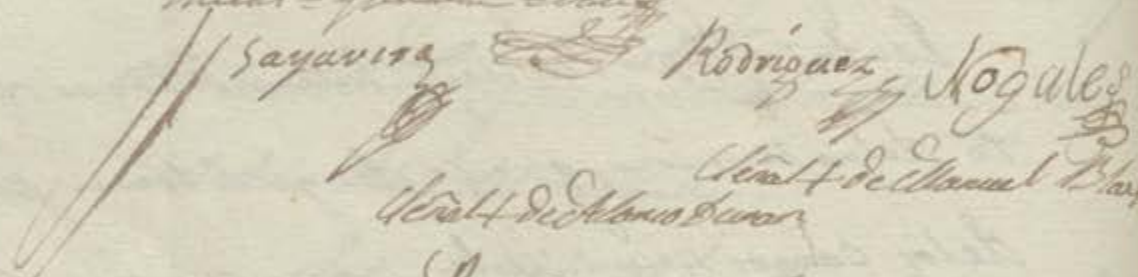 Sayavera Rodriguez Nogales
Señal + de Manuel Blas
Señal + de Alonso Duran